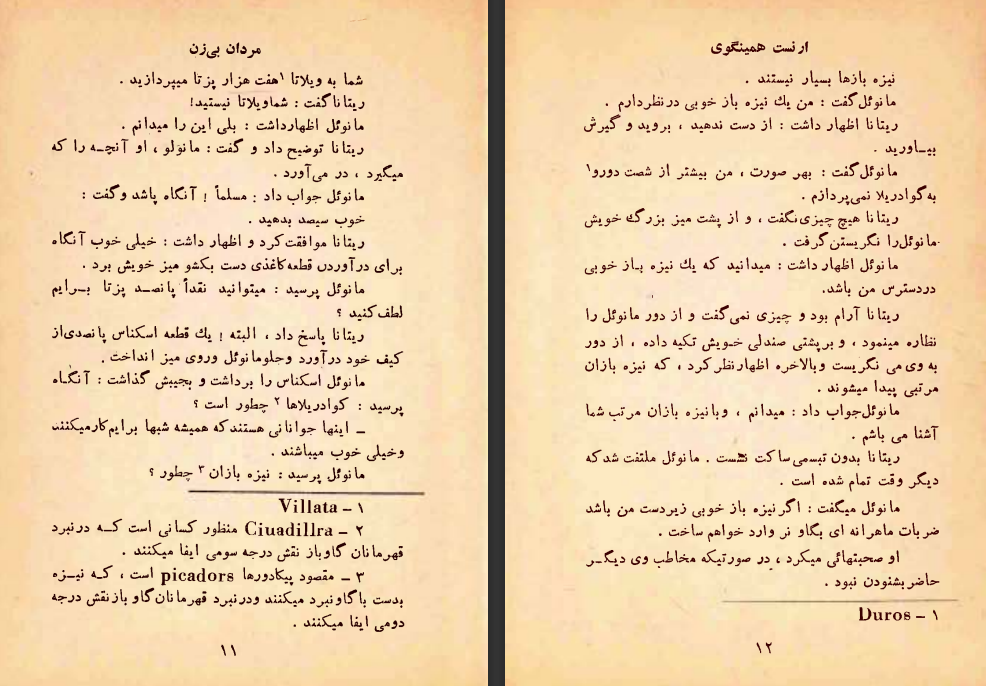 مردان بی‌زن
شما به ویلاتا ۱هفت هزار پزتا میپردازید .
ریتاناگفت : شماویلاتا نیستید!
مانوئل اظهارداشت : بلی این را میدانم .
ریتانا توضیح داد و گفت : مانولو ، او آنچـه را که
میگیرد ، در می‌آورد .
مانوئل جواب داد : مسلماً ! آنگاه پاشد وگفت :
خوب سیصد بدهید .
ریتانا موافقت‌کرد و اظهار داشت : خیلی خوب آنگاه
برای درآوردن قطعه‌کاغذی دست بکشو میز خویش برد .
مانوئل پرسید : میتوانید نقداً پانصـد پزتا بـرایم
لطف‌کنید ؟
ریتانا پاسخ داد ، البته ! یك قطعه اسکناس پانصدی‌از
کیف خود درآورد وجلومانوئل وروی میز انداخت .
مانوئل اسکناس را برداشت و بجیبش گذاشت : آنگـاه
پرسید : کوادریلاها ۲ چطور است ؟
ـ اینها جوانانی هستندکه همیشه شبها برایم‌کارمیکنند
وخیلی خوب میباشند .
مانوئل پرسید : نیزه بازان ۳ چطور ؟
۱ – Villata
۲ – Ciuadillra منظور کسانی است کـه درنبرد
قهرمانان گاوباز نقش درجه سومی ایفا میکنند .
۳ – مقصود پیکادورها picadors است ، کـه نیـزه
بدست باگاونبرد میکنند ودرنبرد قهرمانان‌گاو بازنقش درجه
دومی ایفا میکنند .
۱۱
ارنست همینگوی
نیزه بازها بسیار نیستند .
مانوئل‌گفت : من یك نیزه باز خوبی درنظردارم .
ریتانا اظهار داشت : از دست ندهید ، بروید و گیرش
بیـاورید .
مانوئل‌گفت : بهر صورت ، من بیشتر از شصت دورو۱
به‌گوادریلا نمی‌پردازم .
ریتانا هیچ چیزی‌نگفت ، و از پشت میز بزرگ خویش
مانوئل‌را نگریستن‌گرفت .
مانوئل اظهار داشت : میدانید که یك نیزه بـاز خوبی
دردسترس من باشد.
ریتانا آرام بود و چیزی نمی‌گفت و از دور مانوئل را
نظاره مینمود ، و برپشتی صندلی خـویش تکیه داده ، از دور
به وی‌می نگریست وبالاخره اظهارنظرکرد ، که نیزه بازان
مرتبی پیدا میشوند .
مانوئل‌جواب داد : میدانم ، وبانیزه بازان مرتب شما
آشنا می باشم .
ریتانا بدون تبسمی‌ساکت نشست . مانوئل ملتفت شدکه
دیگر وقت تمام شده است .
مانوئل میگفت : اگرنیزه باز خوبی زیردست من باشد
ضربات ماهرانه ای بگاو نر وارد خواهم ساخت .
او صحبتهائی میکرد ، در صورتیکه مخاطب وی دیگـر
حاضربشنودن نبود .
۱ – Duros
۱۲